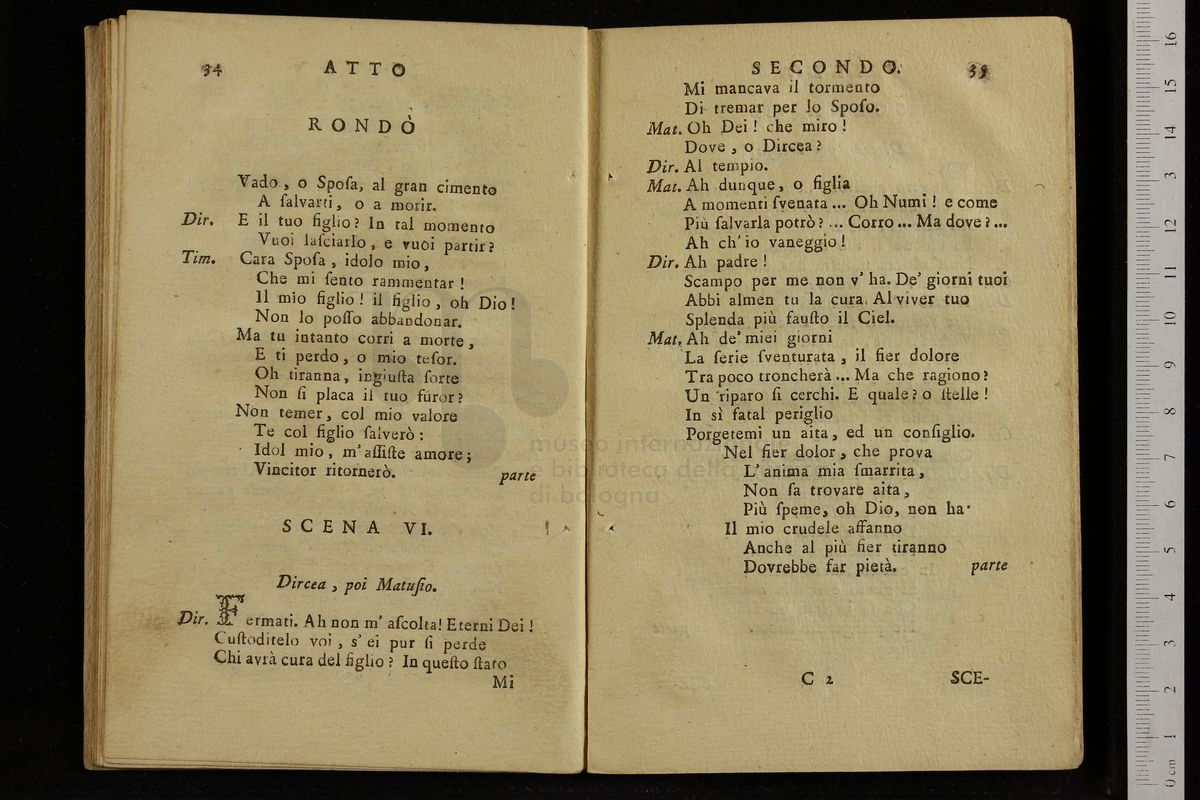 34 ATTO
RONDÒ
Vado, o Spoſa, al gran cimento
A ſalvarti, o a morir.
Dir. E il tuo figlio? In tal momento
Vuoi laſciarlo, e vuoi partir?
Tim. Cara Spoſa, idolo mio,
Che mi ſento rammentar!
Il mio figlio! il figlio, oh Dio!
Non lo poſſo abbandonar.
Ma tu intanto corri a morte,
E ti perdo, o mio teſor.
Oh tiranna, ingiuſta ſorte
Non ſi placa il tuo furor?
Non temer, col mio valore
Te col figlio ſalverò:
Idol mio, m'aſſiſte amore;
Vincitor ritornerò. parte
SCENA VI.
Dircea, poi Matuſio.
Dir. Fermati. Ah non m'aſcolta! Eterni Dei!
Cuſtoditelo voi, s'ei pur ſi perde
Chi avrà cura del figlio? In queſto ſtato
Mi
SECONDO. 35
Mi mancava il tormento
Di tremar per lo Spoſo.
Mat. Oh Dei! che miro!
Dove, o Dircea?
Dir. Al tempio.
Mat. Ah dunque, o figlia
A momenti ſvenata... Oh Numi! e come
Più ſalvarla potrò?... Corro... Ma dove?...
Ah ch'io vaneggio!
Dir. Ah padre!
Scampo per me non v'ha. De' giorni tuoi
Abbi almen tu la cura. Al viver tuo
Splenda più fauſto il Ciel.
Mat. Ah de' miei giorni
La ſerie ſventurata, il fier dolore
Tra poco troncherà... Ma che ragiono?
Un riparo ſi cerchi. E quale? o ſtelle!
In sì fatal periglio
Porgetemi un aita, ed un conſiglio.
Nel fier dolor, che prova
L'anima mia ſmarrita,
Non ſa trovare aita,
Più ſpeme, oh Dio, non ha.
Il mio crudele affanno
Anche al più fier tiranno
Dovrebbe far pietà. parte
C 2 SCE-
museo internazionale
e biblioteca della
di bologna
0 cm 1 2 3 4 5 6 7 8 9 10 11 12 13 14 15 16